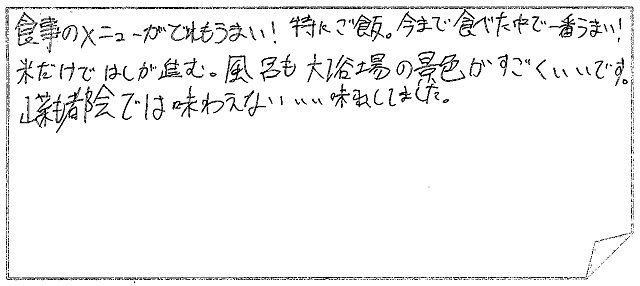 食事のメニューがどれもうまい！特にご飯。今まで食べた中で一番うまい！
米だけではしが進む。風呂も大浴場の景色がすごくいいです。
山菜も都会では味わえないいい味をしてました。